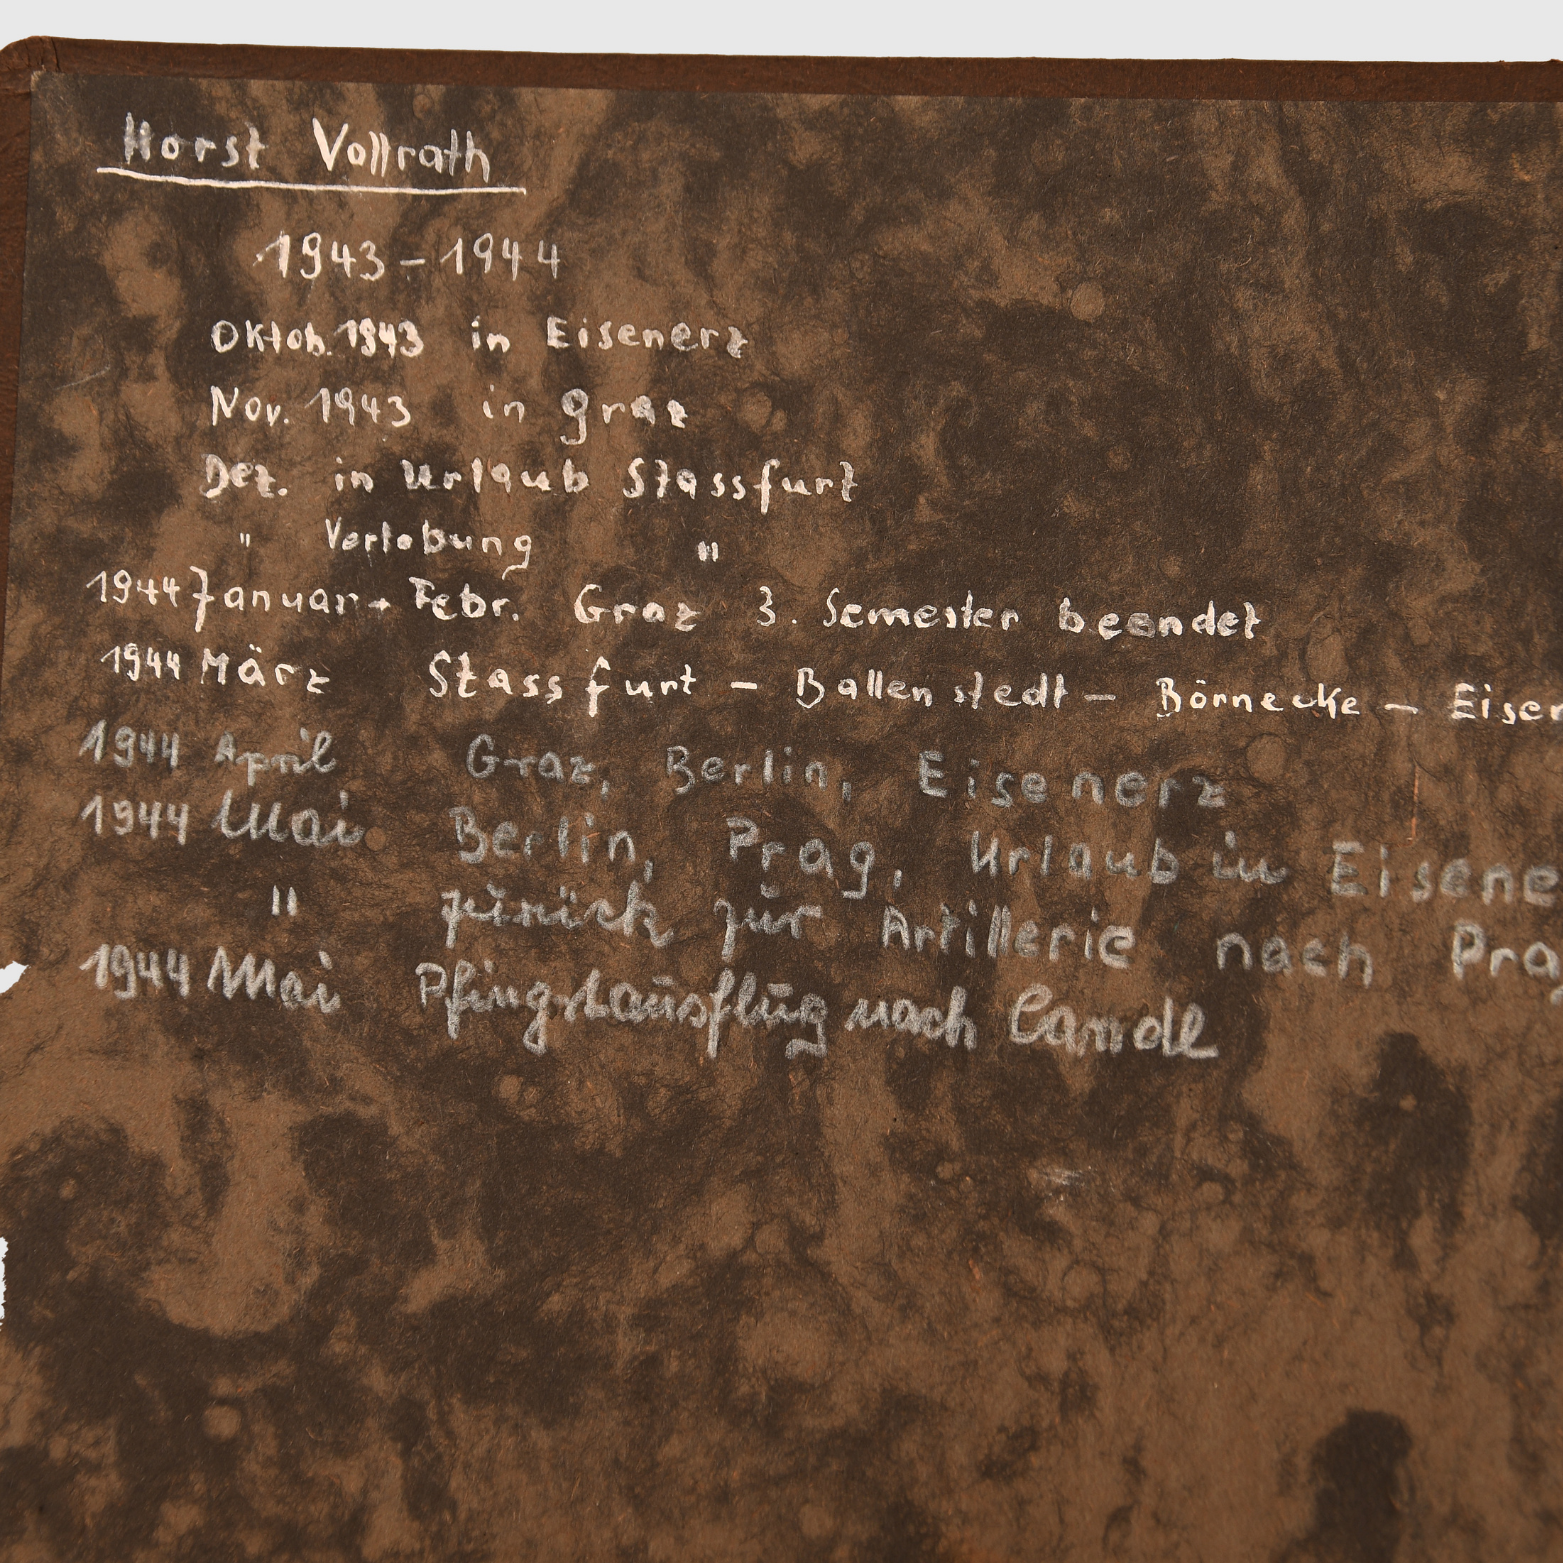 Horst Vollrath
1943 - 1944
Oktob. 1943 in Eisenerz
Nov. 1943 in graz
Dez. in Urlaub Stassfurt
" Verlobung "
1944 Januar + Febr. Graz 3. Semester beendet
1944 März Stassfurt - Ballenstedt - Börnecke - Eisen
1944 April Graz, Berlin, Eisenerz
1944 Mai Berlin, Prag, Urlaub in Eisene
" zurück zur Artillerie nach Prag
1944 Mai Pfingstausflug nach